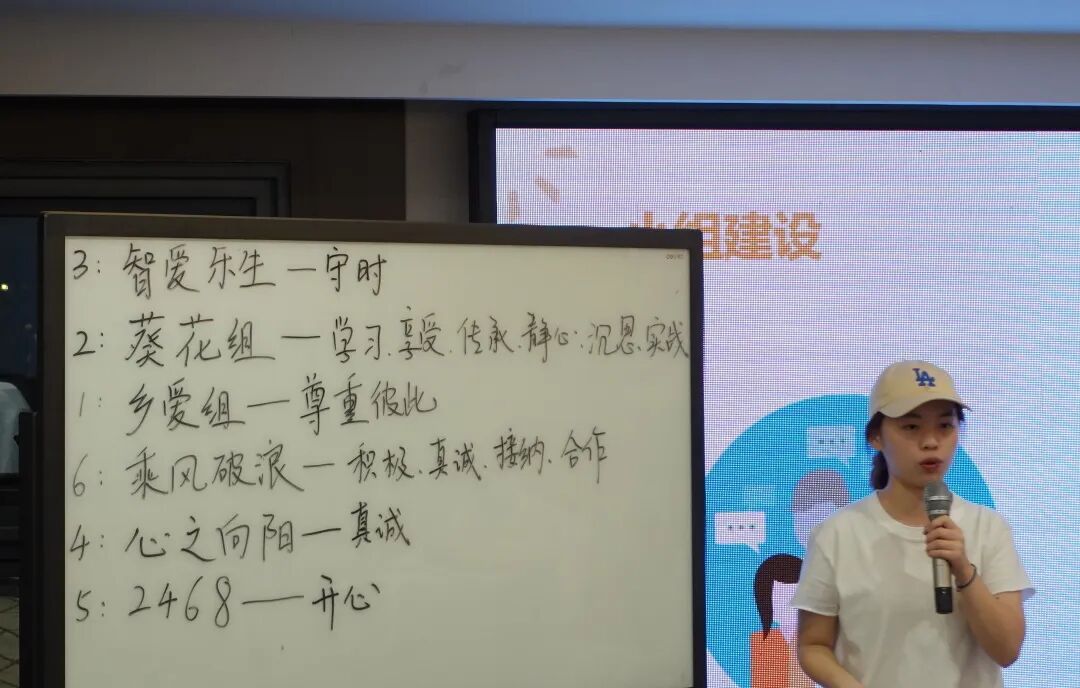 小组建设
3: 智爱乐生—守时
2: 葵花组—学习、享受、传承、静心、沉思、实战
1: 乡爱组—尊重彼此
6: 乘风破浪—积极、真诚、接纳、合作
4: 心之向阳—真诚
5: 2468—开心
LA